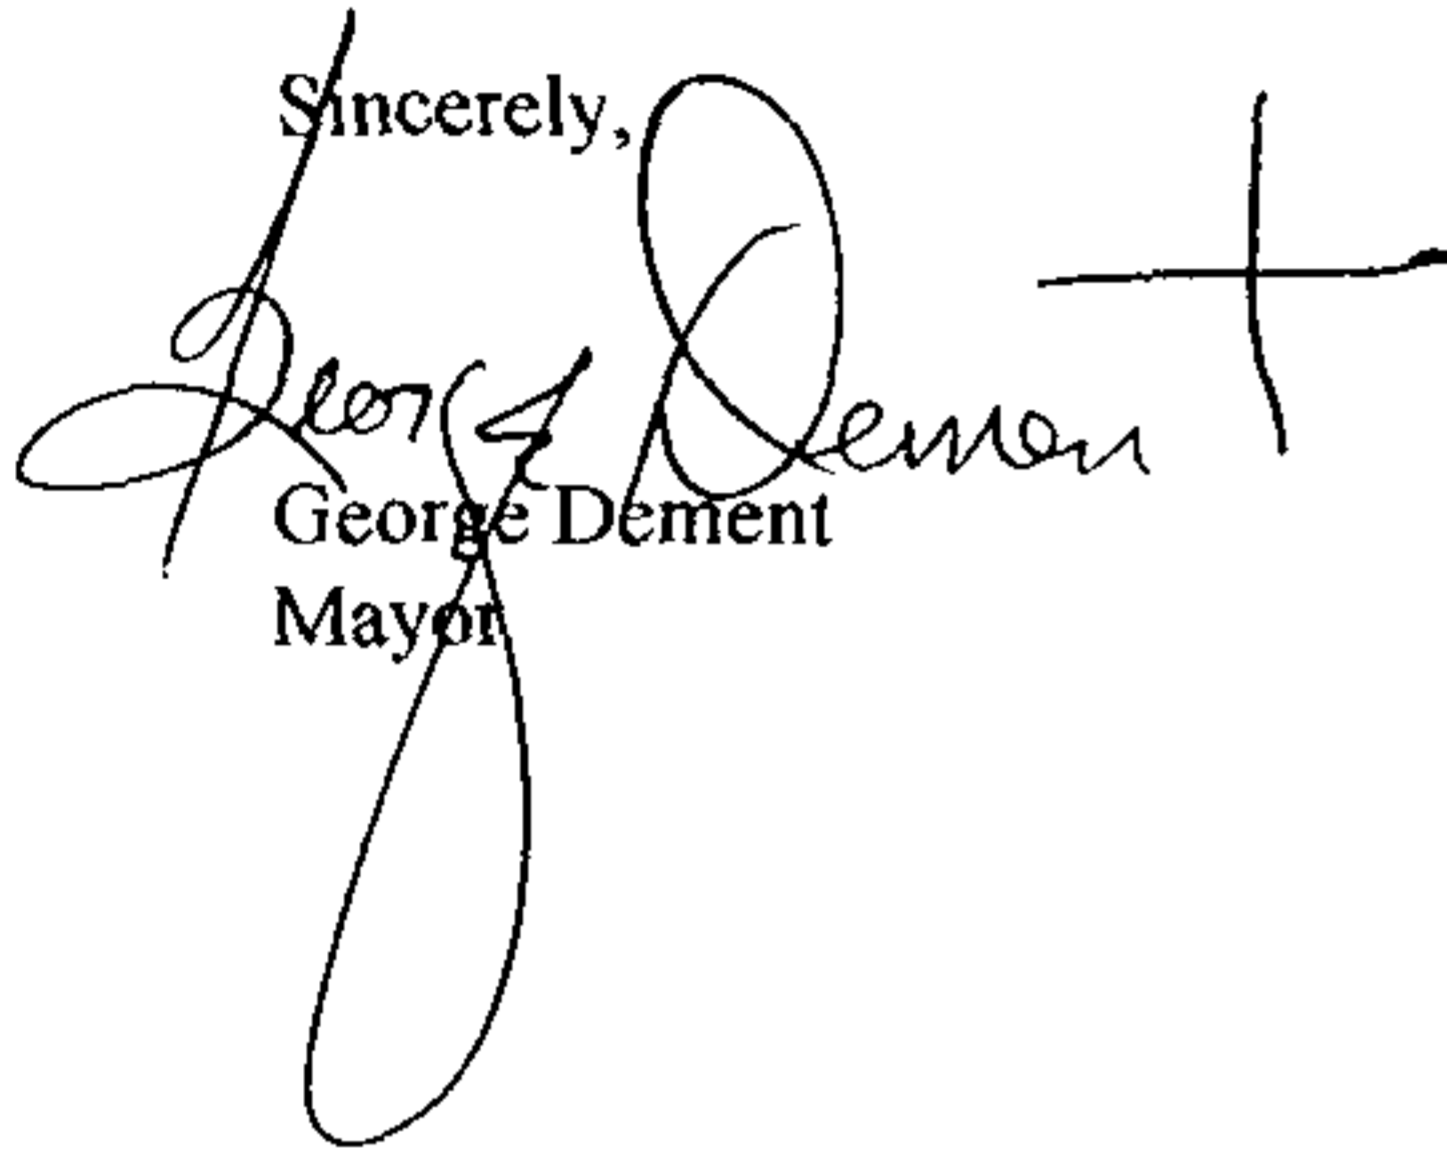 Sincerely,
George Dement
George Dement
Mayor